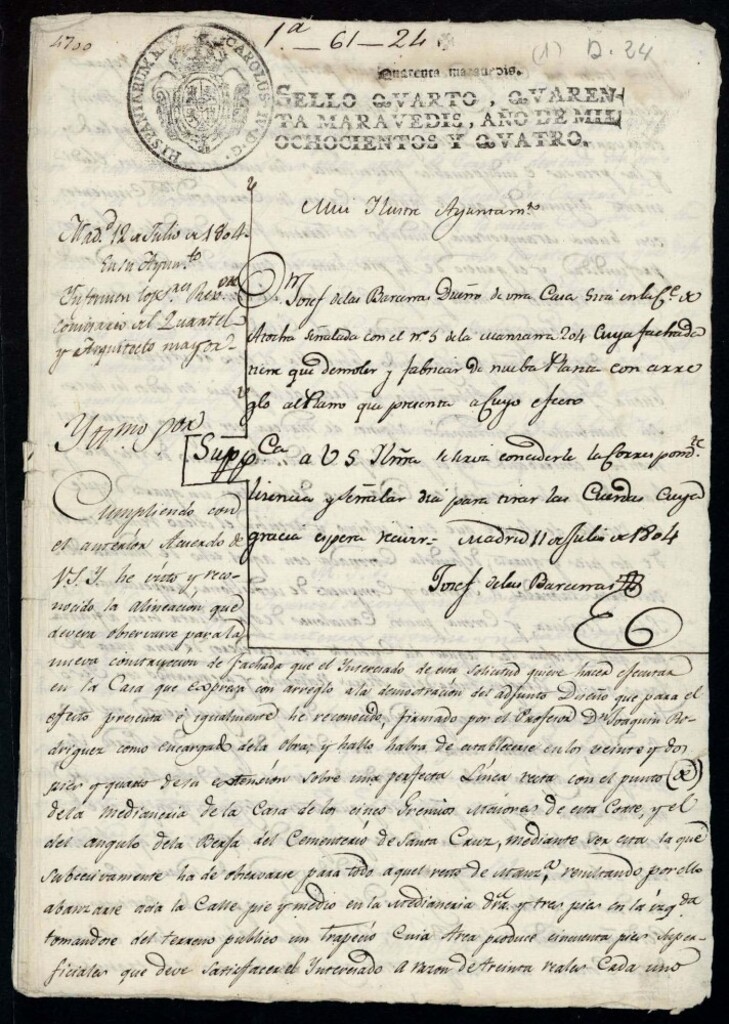 4700
1.ª - 61 - 24
(1) D. 24
HISPANIARUM REX CAROLUS IV D. G.
Quarenta maravedis.
SELLO QVARTO, QVAREN-
TA MARAVEDIS, AÑO DE MIL
OCHOCIENTOS Y QVATRO.
Mui Ilustre Ayuntam.to
Mad.d 12 de Julio de 1804.
En su Ayun.to
Informen los
comisario del Quartel
y Arquitecto mayor
Josef de las Barcenas Dueño de una Casa Sita en la C.e de
Atocha señalada con el n.º 5 de la manzana 204 Cuya fachada
tiene que demoler y fabricar de nueba Planta con arre-
glo al Plano que presenta a Cuyo efecto
Supp.ca a V S Ilma se sirva concederle la Correspond.te
licencia y señalar dia para tirar las Cuerdas Cuya
gracia espera recivir = Madrid 11 de Julio de 1804
Josef de las Barcenas
Yttmo Sor
Cumpliendo con
el anterior Acuerdo de
V.S.Y. he visto y reco-
nocido la alineacion que
devera observarse para la
nueva construccion de fachada que el Interesado de esta solicitud quiere hacer ejecutar
en la Casa que expresa con arreglo a la demostracion del adjunto Diseño que para el
efecto presenta é igualmente he reconocido, firmado por el Profesor Dn Joaquin Ro-
driguez como encargado de la obra; y hallo habra de establecerse en los veinte y dos
pies y quarto de la extension sobre una perfecta Linea recta con el punto
de la medianeria de la Casa de los cinco Gremios Maiores de esta Corte, y el
del angulo de la Berja del Cementerio de Santa Cruz, mediante ser esta la que
subcesivamente ha de observarse para todo aquel resto de Manz.a, resultando por ello
abanzarse acia la Calle pie y medio en la Medianeria dra. y tres pies en la izq.da
tomandose del terreno publico un trapecio Cuia Area produce cincuenta pies super-
ficiales que deve Satisfacer el Interesado a razon de treinta reales Cada uno